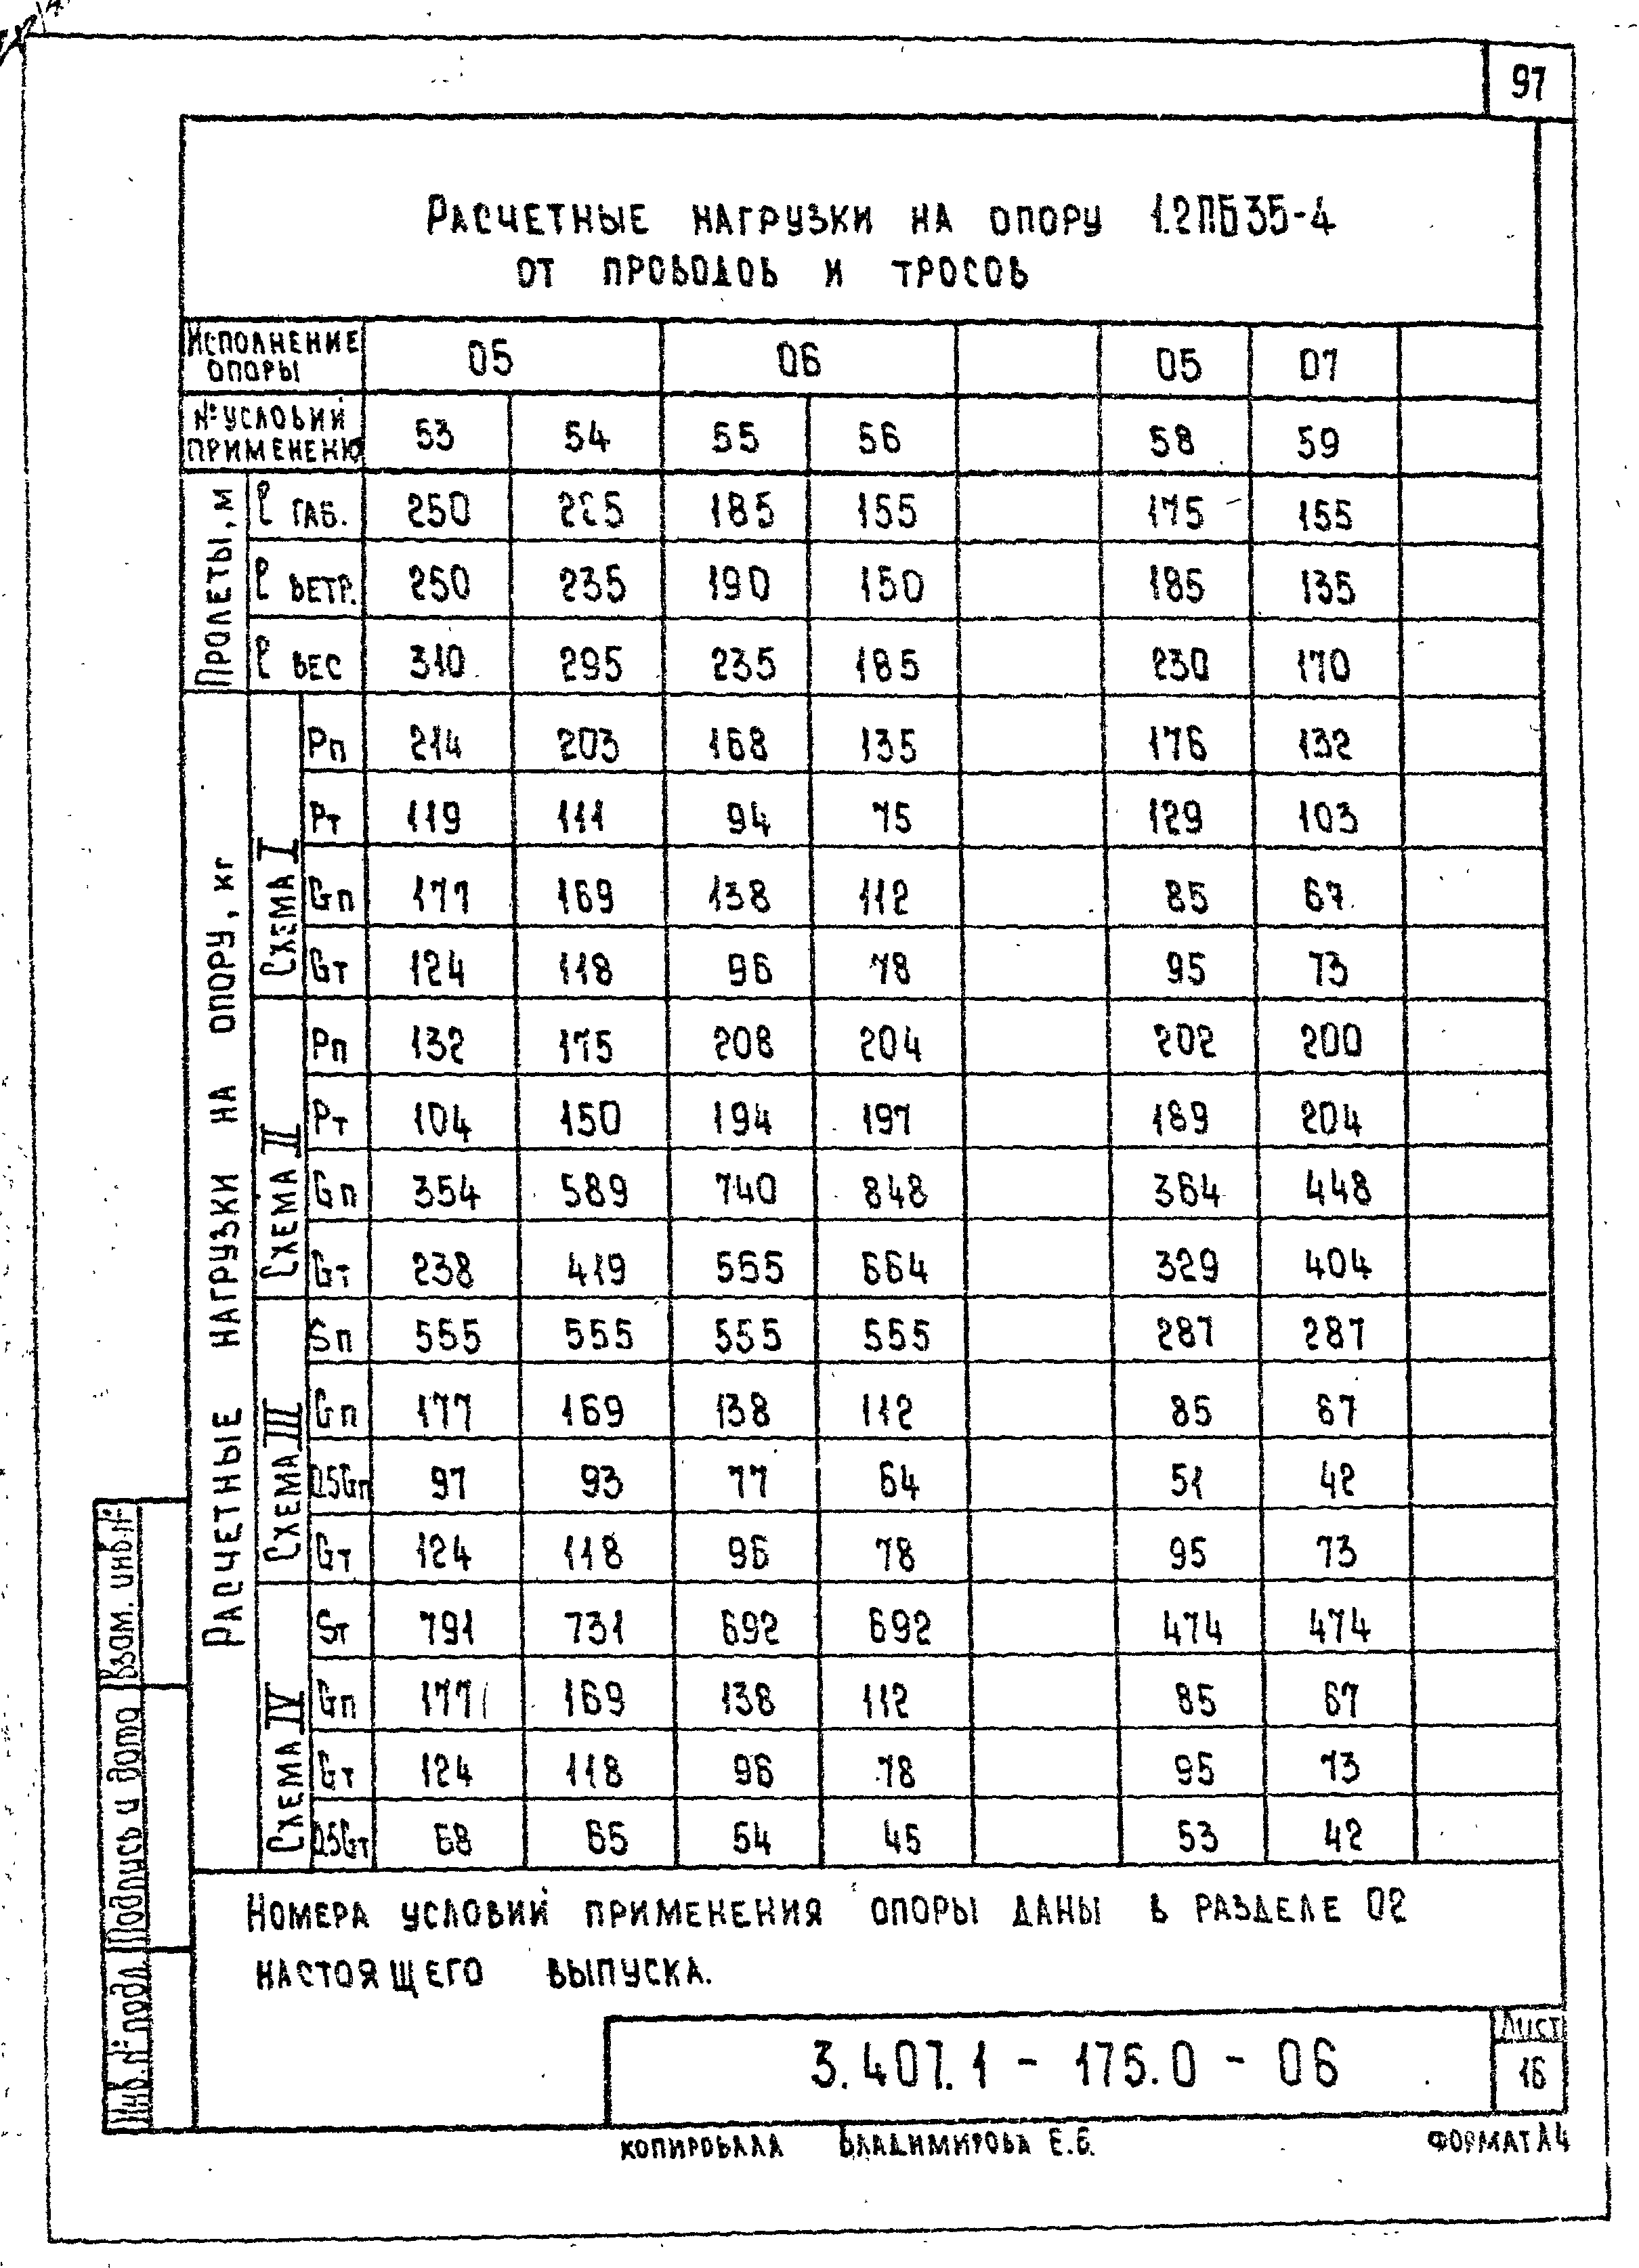 97
Расчетные нагрузки на опору 1.2ПБ35-4
от проводов и тросов
Исполнение опоры 05 06 05 07
№ условий применения 53 54 55 56 58 59
Пролеты, м
ℓ габ. 250 185 155 175 155
ℓ ветр. 250 235 190 150 185 135
ℓ вес 310 295 235 185 230 170
Расчетные нагрузки на опору, кг
Схема I
Рп 214 203 168 135 176 132
Рт 119 111 94 75 129 103
Gп 177 169 138 112 85 67
Gт 124 118 96 78 95 73
Схема II
Рп 132 175 208 204 202 200
Рт 104 150 194 197 189 204
Gп 354 589 740 848 364 448
Gт 238 419 555 664 329 404
Схема III
Sп 555 555 555 555 287 287
Gп 177 169 138 112 85 67
0,5Gп 97 93 77 64 51 42
Gт 124 118 96 78 95 73
Схема IV
Sт 791 731 692 692 474 474
Gп 177 169 138 112 85 67
Gт 124 118 96 78 95 73
0,5Gт 68 65 54 45 53 42
Номера условий применения опоры даны в разделе 02
настоящего выпуска.
Взам. инв. №
Подпись и дата
Инв. № подл.
3.407.1 - 175.0 - 06
Лист
16
Копировала Владимирова Е.Б.
Формат А4